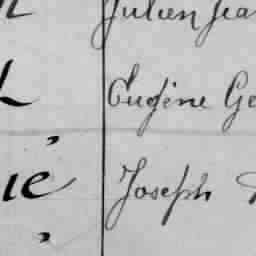 Julien Jea
Eugène Ge
ié Joseph